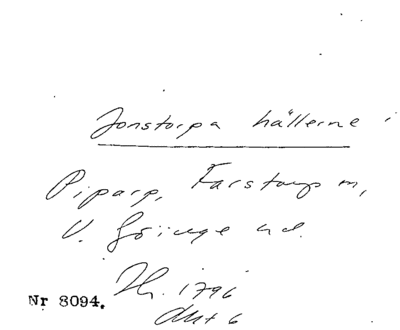 Jonstorpa hällerne i
Piparp, Farstorp m,
V. Göinge hd.
Nr 8094. Th. 1796
Akt 6